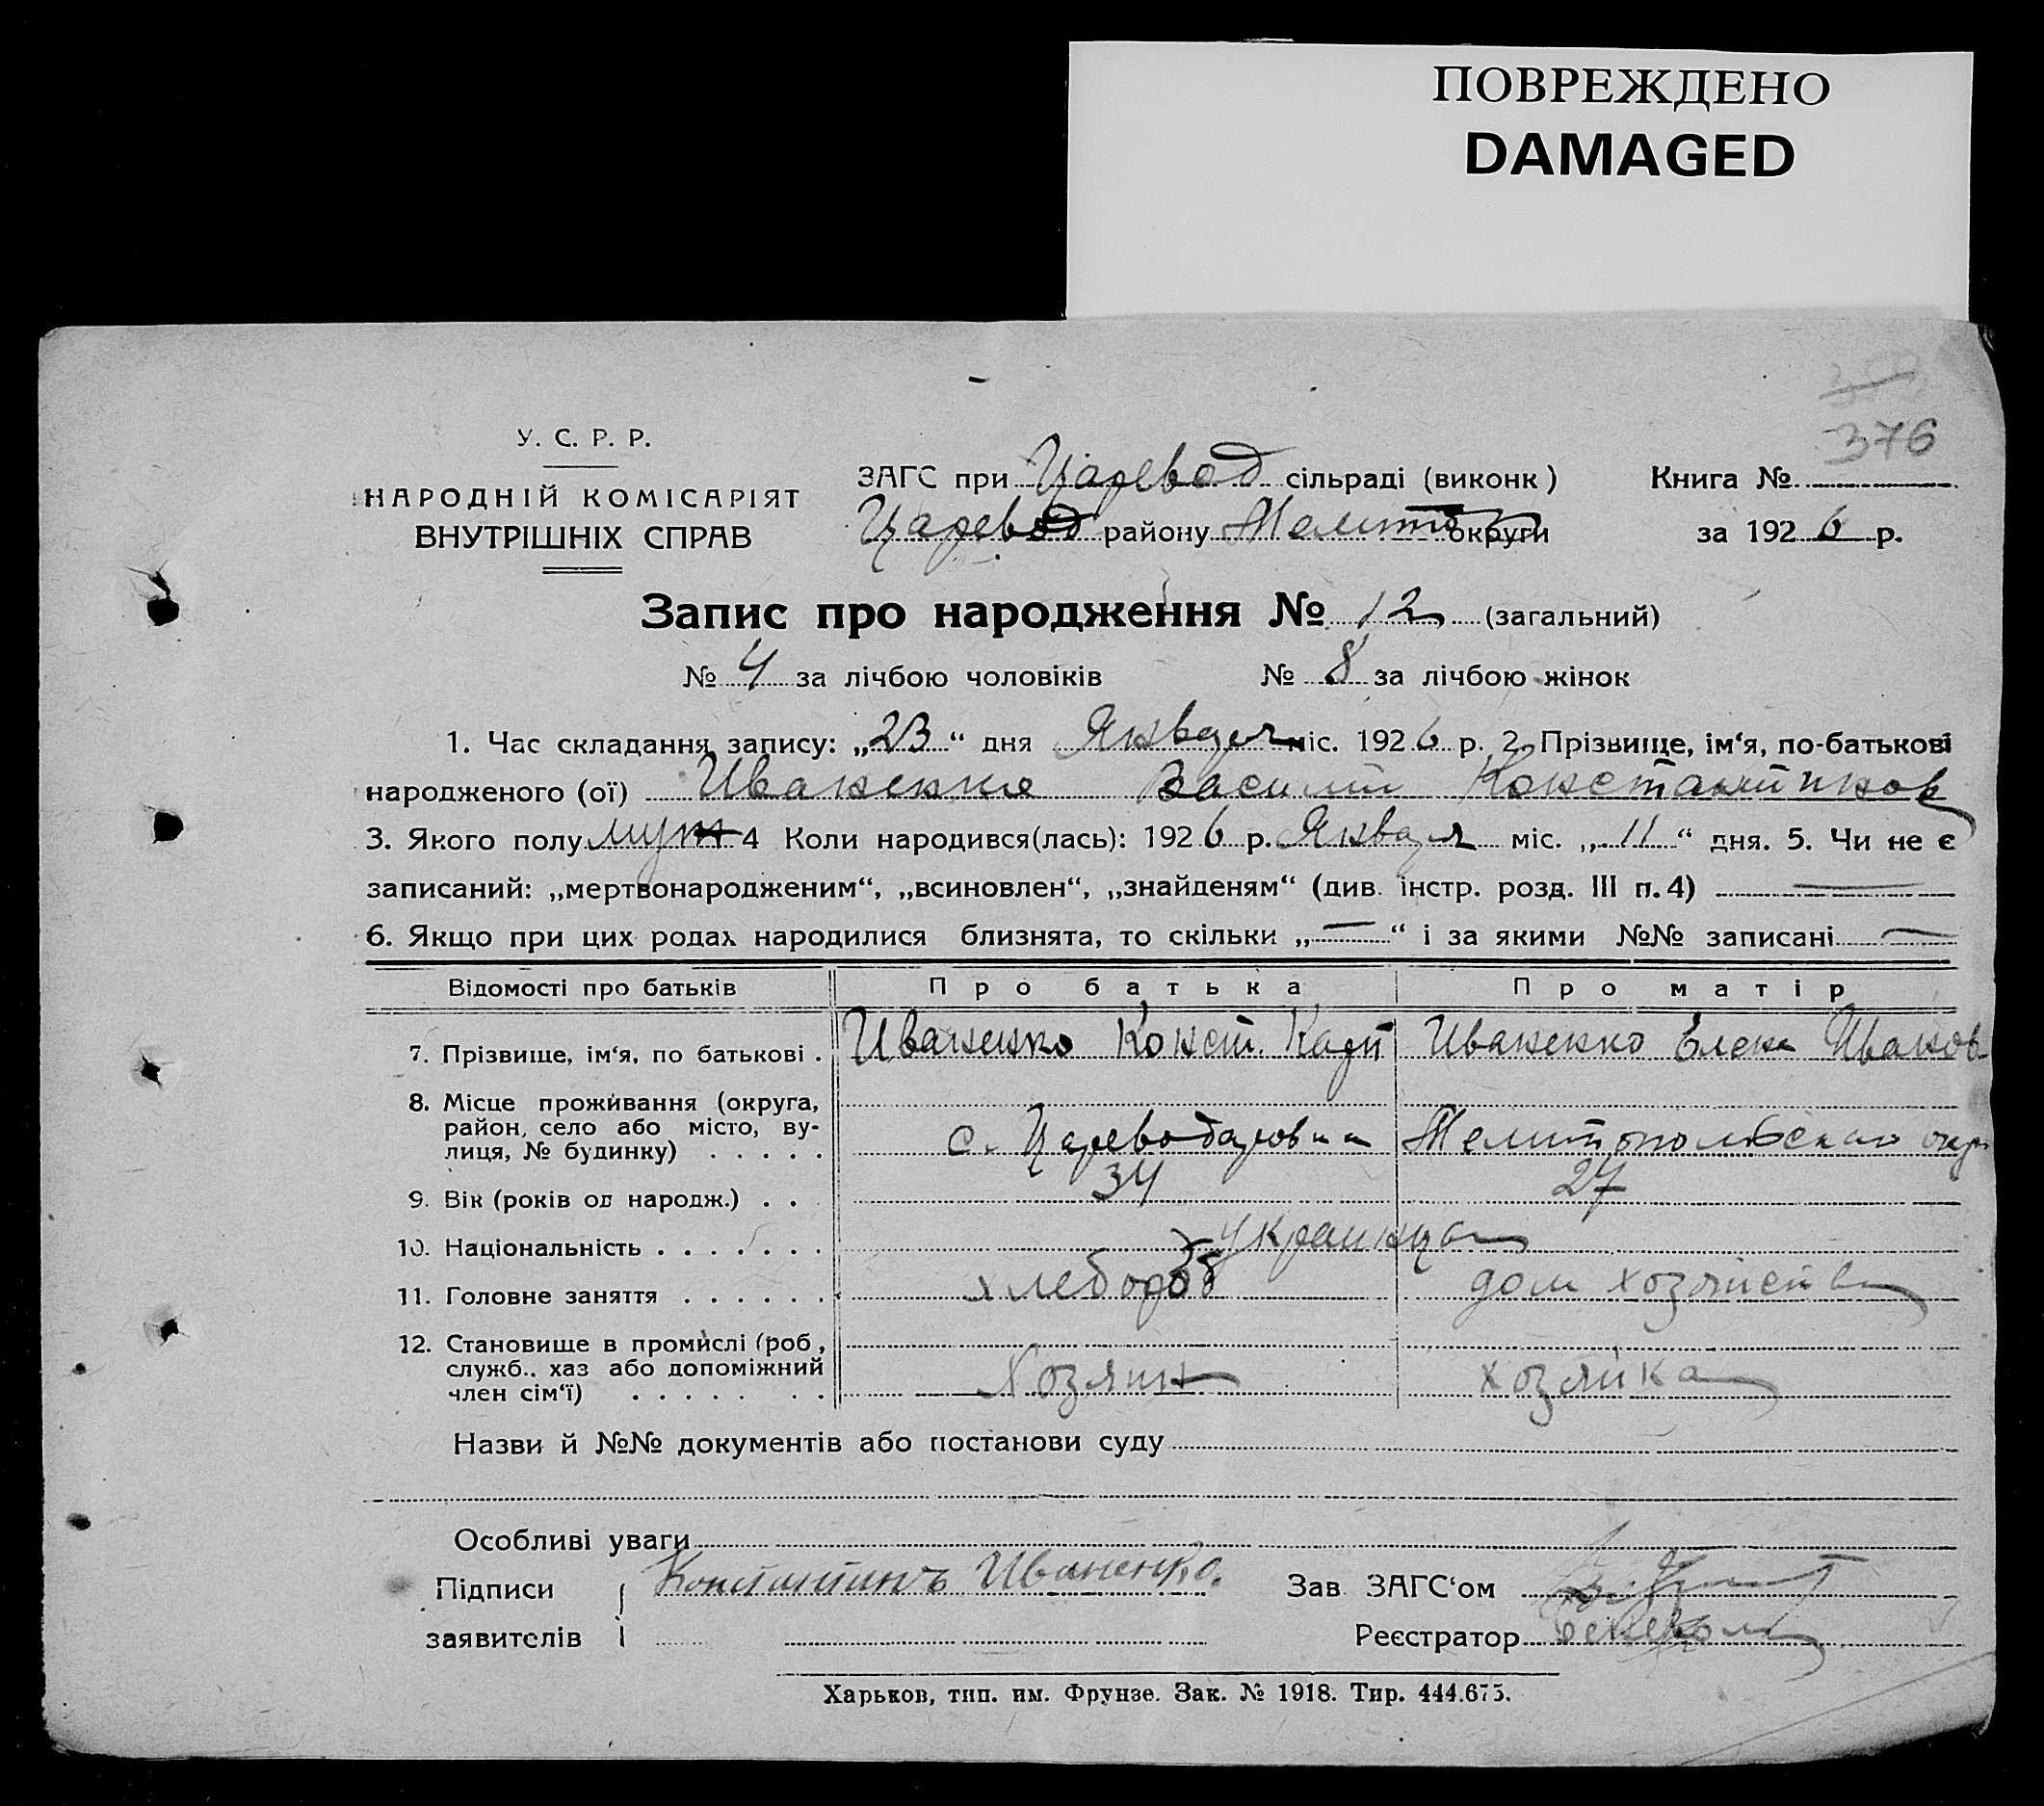 ПОВРЕЖДЕНО
DAMAGED
376
У. С. Р. Р.
НАРОДНІЙ КОМІСАРІЯТ
ВНУТРІШНІХ СПРАВ
ЗАГС при Царевод сільраді (виконк) Книга №
Царевод району Мелито округи за 1926 р.
Запис про народження № 12 (загальний)
№ 4 за лічбою чоловіків № 8 за лічбою жінок
1. Час складання запису: „23“ дня Января міс. 1926 р. 2. Прізвище, ім‘я, по-батькові
народженого (ої) Иваненко Василий Константинов
3. Якого полу муж 4 Коли народився(лась): 1926 р. Января міс. „11“ дня. 5. Чи не є
записаний: „мертвонародженим“, „всиновлен“, „знайденям“ (див. інстр. розд. III п. 4) —
6. Якщо при цих родах народилися близнята, то скільки „—“ і за якими №№ записані —
Відомості про батьків Про батька Про матір
7. Прізвище, ім‘я, по батькові . Иваненко Конст. Иваненко Елена Иванов
8. Місце проживання (округа,
район, село або місто, ву-
лиця, № будинку) . . . . . с. Цареводаровка Мелитопольского окр
9. Вік (років од народж.) . . 34 27
10. Національність . . . . . . . украинцы
11. Головне заняття . . . . . . хлебороб дом хозяйств
12. Становище в промислі (роб,
служб.. хаз або допоміжний
член сім‘ї) . . . . . . . Хозяин хозяйка
Назви й №№ документів або постанови суду
Особливі уваги
Підписи Константинъ Иваненко. Зав ЗАГС‘ом
заявителів Реєстратор
Харьков, тип. им. Фрунзе. Зак. № 1918. Тир. 444.675.